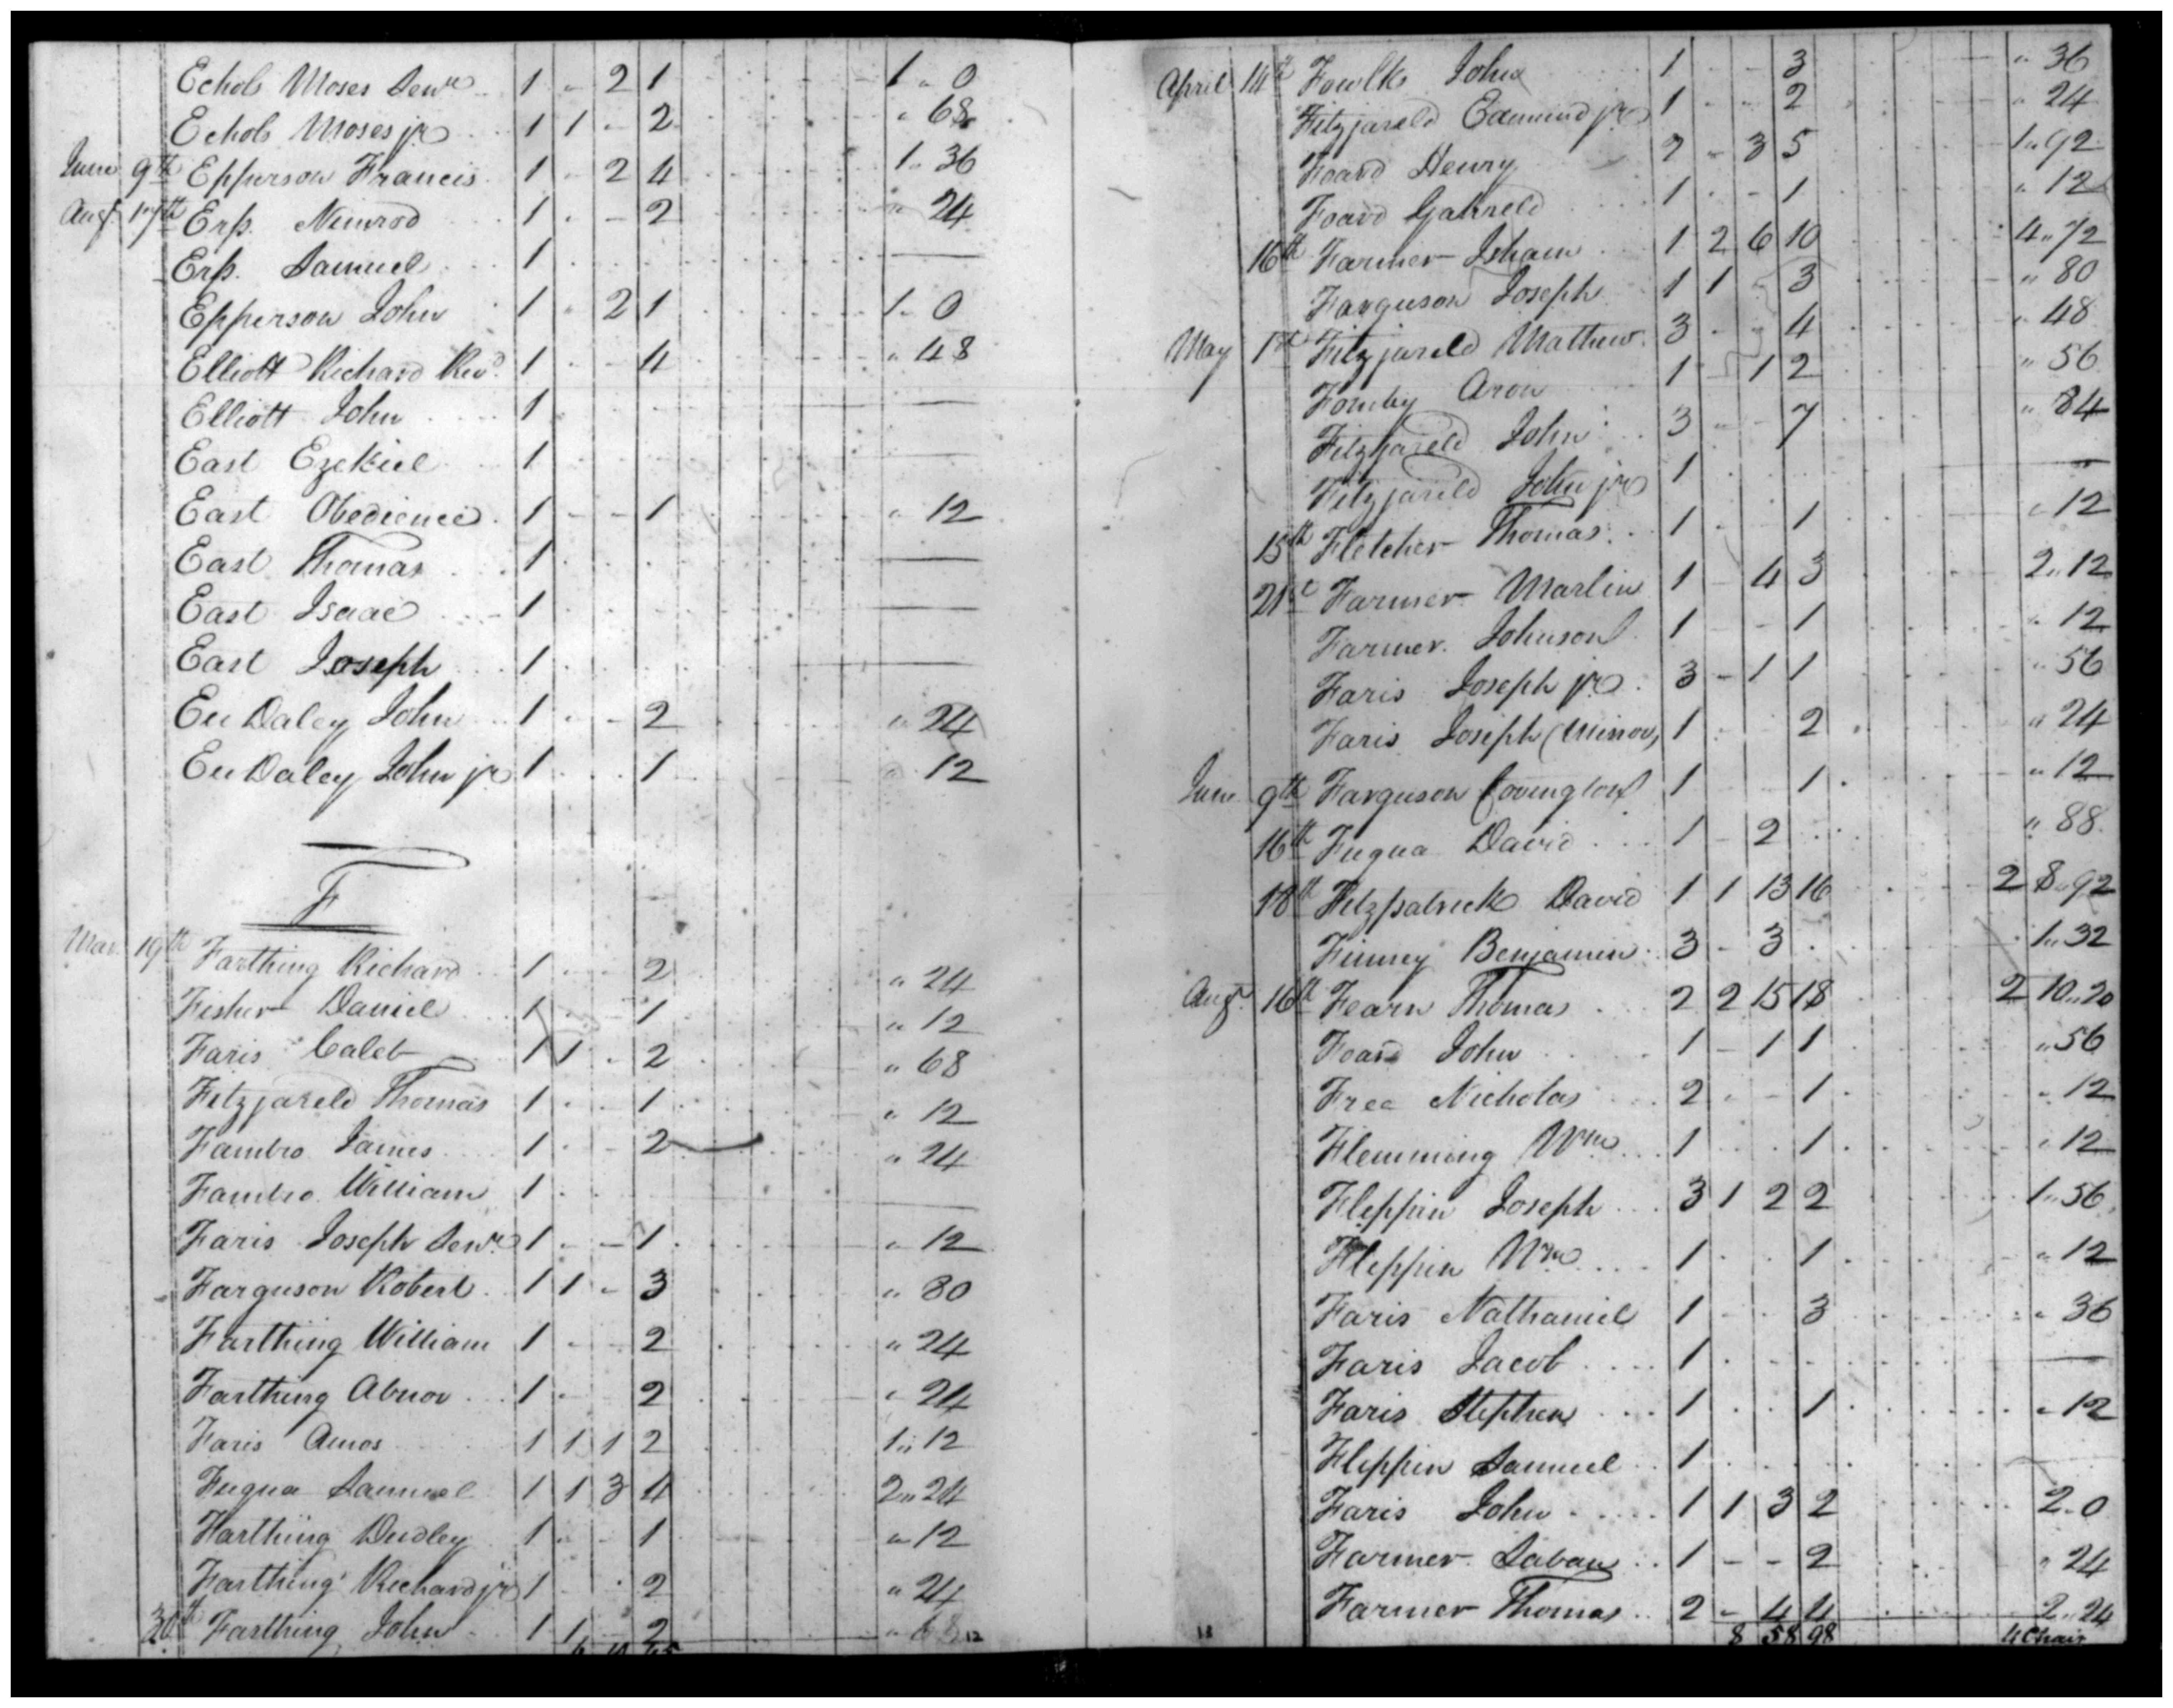 Echols Moses Senr 1 - 2 1 1 " 0
Echols Moses jr 1 1 - 2 " 68
June 9th Epperson Francis 1 - 2 4 1 " 36
Augt 17th Erp. Nimrod 1 - - 2 " 24
Erp. Samuel 1 —
Epperson John 1 " 2 1 1 " 0
Elliott Richard Revd. 1 - - 4 " 48
Elliott John 1 —
East Ezekiel 1 —
East Obedience 1 - - 1 " 12
East Thomas 1 —
East Isaac 1 —
East Joseph 1 —
EuDaley John 1 - - 2 " 24
EuDaley John jr 1 1 " 12
F
Mar. 19th Farthing Richard 1 - - 2 " 24
Fisher Daniel 1 - 1 " 12
Faris Caleb 1 1 - 2 " 68
Fitzjareld Thomas 1 - - 1 " 12
Fambro James 1 - - 2 " 24
Fambro William 1 —
Faris Joseph Senr 1 - - 1 " 12
Farguson Robert 1 1 - 3 " 80
Farthing William 1 - - 2 " 24
Farthing Abnor 1 - 2 " 24
Faris Amos 1 1 1 2 1 " 12
Fuqua Samuel 1 1 3 4 2 " 24
Farthing Dudley 1 - - 1 " 12
Farthing Richard jr 1 - 2 " 24
30th Farthing John 1 1 - 2 " 68
April 14th Fowlk John 1 - - 3 " 36
Fitzjareld Edmund jr 1 - - 2 " 24
Foard Henry 2 - 3 5 1 " 92
Foard Gabreld 1 - - 1 " 12
16th Farmer Isham 1 2 6 10 4 " 72
Farguson Joseph 1 1 3 " 80
May 1st Fitzjareld Mathew 3 - - 4 " 48
Fomby Aron 1 - 1 2 " 56
Fitzjareld John 3 - - 7 " 84
Fitzjareld John jr 1 —
15th Fletcher Thomas 1 - 1 " 12
21st Farmer Marlin 1 - 4 3 2 " 12
Farmer Johnson 1 - - 1 " 12
Faris Joseph jr 3 - 1 1 " 56
Faris Joseph (Minor) 1 - 2 " 24
June 9th Farguson Covington 1 - 1 " 12
16th Fuqua David 1 - 2 " 88
18th Fitzpatrick David 1 1 13 16 2 8 " 92
Finney Benjamin 3 - 3 1 " 32
Augt 16th Fearn Thomas 2 2 15 18 2 10 " 20
Foard John 1 - 1 1 " 56
Free Nicholas 2 - - 1 " 12
Flemming Wm 1 1 " 12
Fleppin Joseph 3 1 2 2 1 " 56
Fleppin Wm 1 1 " 12
Faris Nathaniel 1 - - 3 " 36
Faris Jacob 1 —
Faris Stephen 1 1 " 12
Fleppin Samuel 1 —
Faris John 1 1 3 2 2 " 0
Farmer Saban 1 - - 2 " 24
Farmer Thomas 2 - 4 4 2 " 24
8 58 98 4 Chair